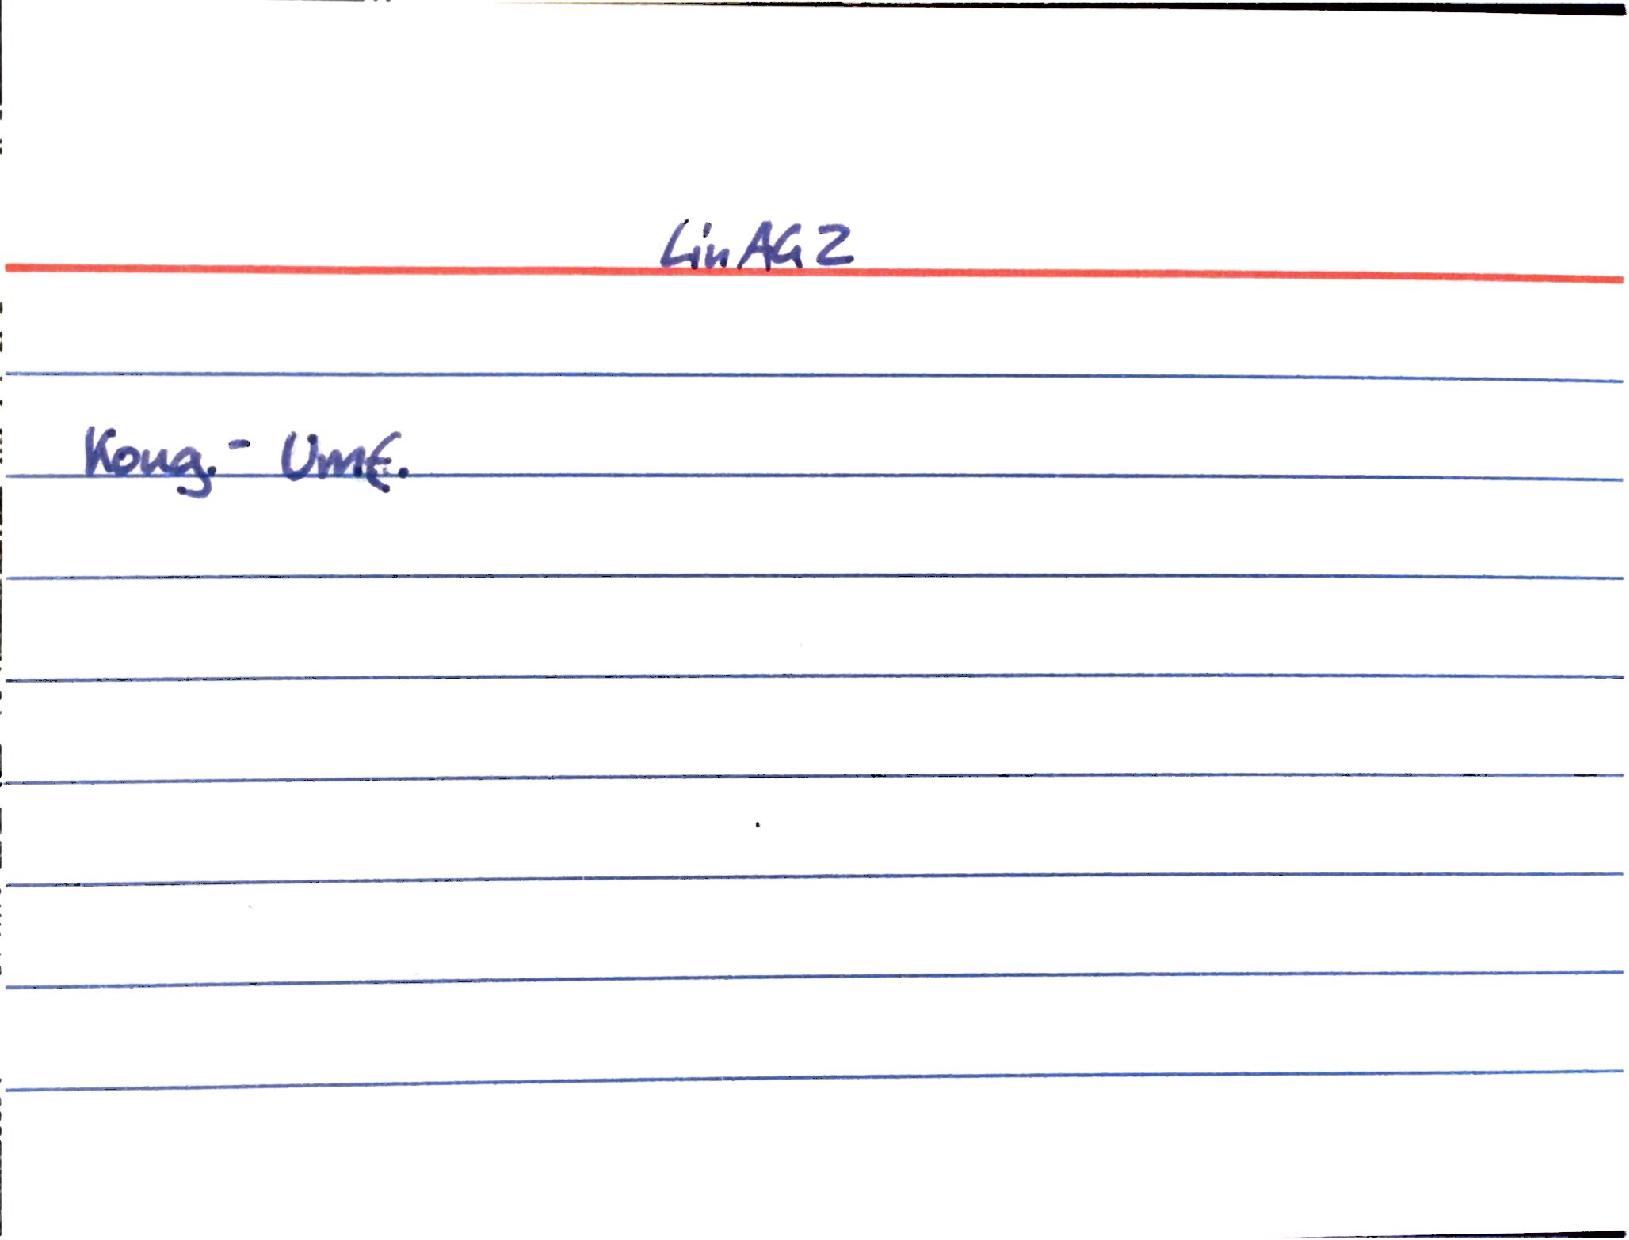 LinAG 2
Kong.- Umf.